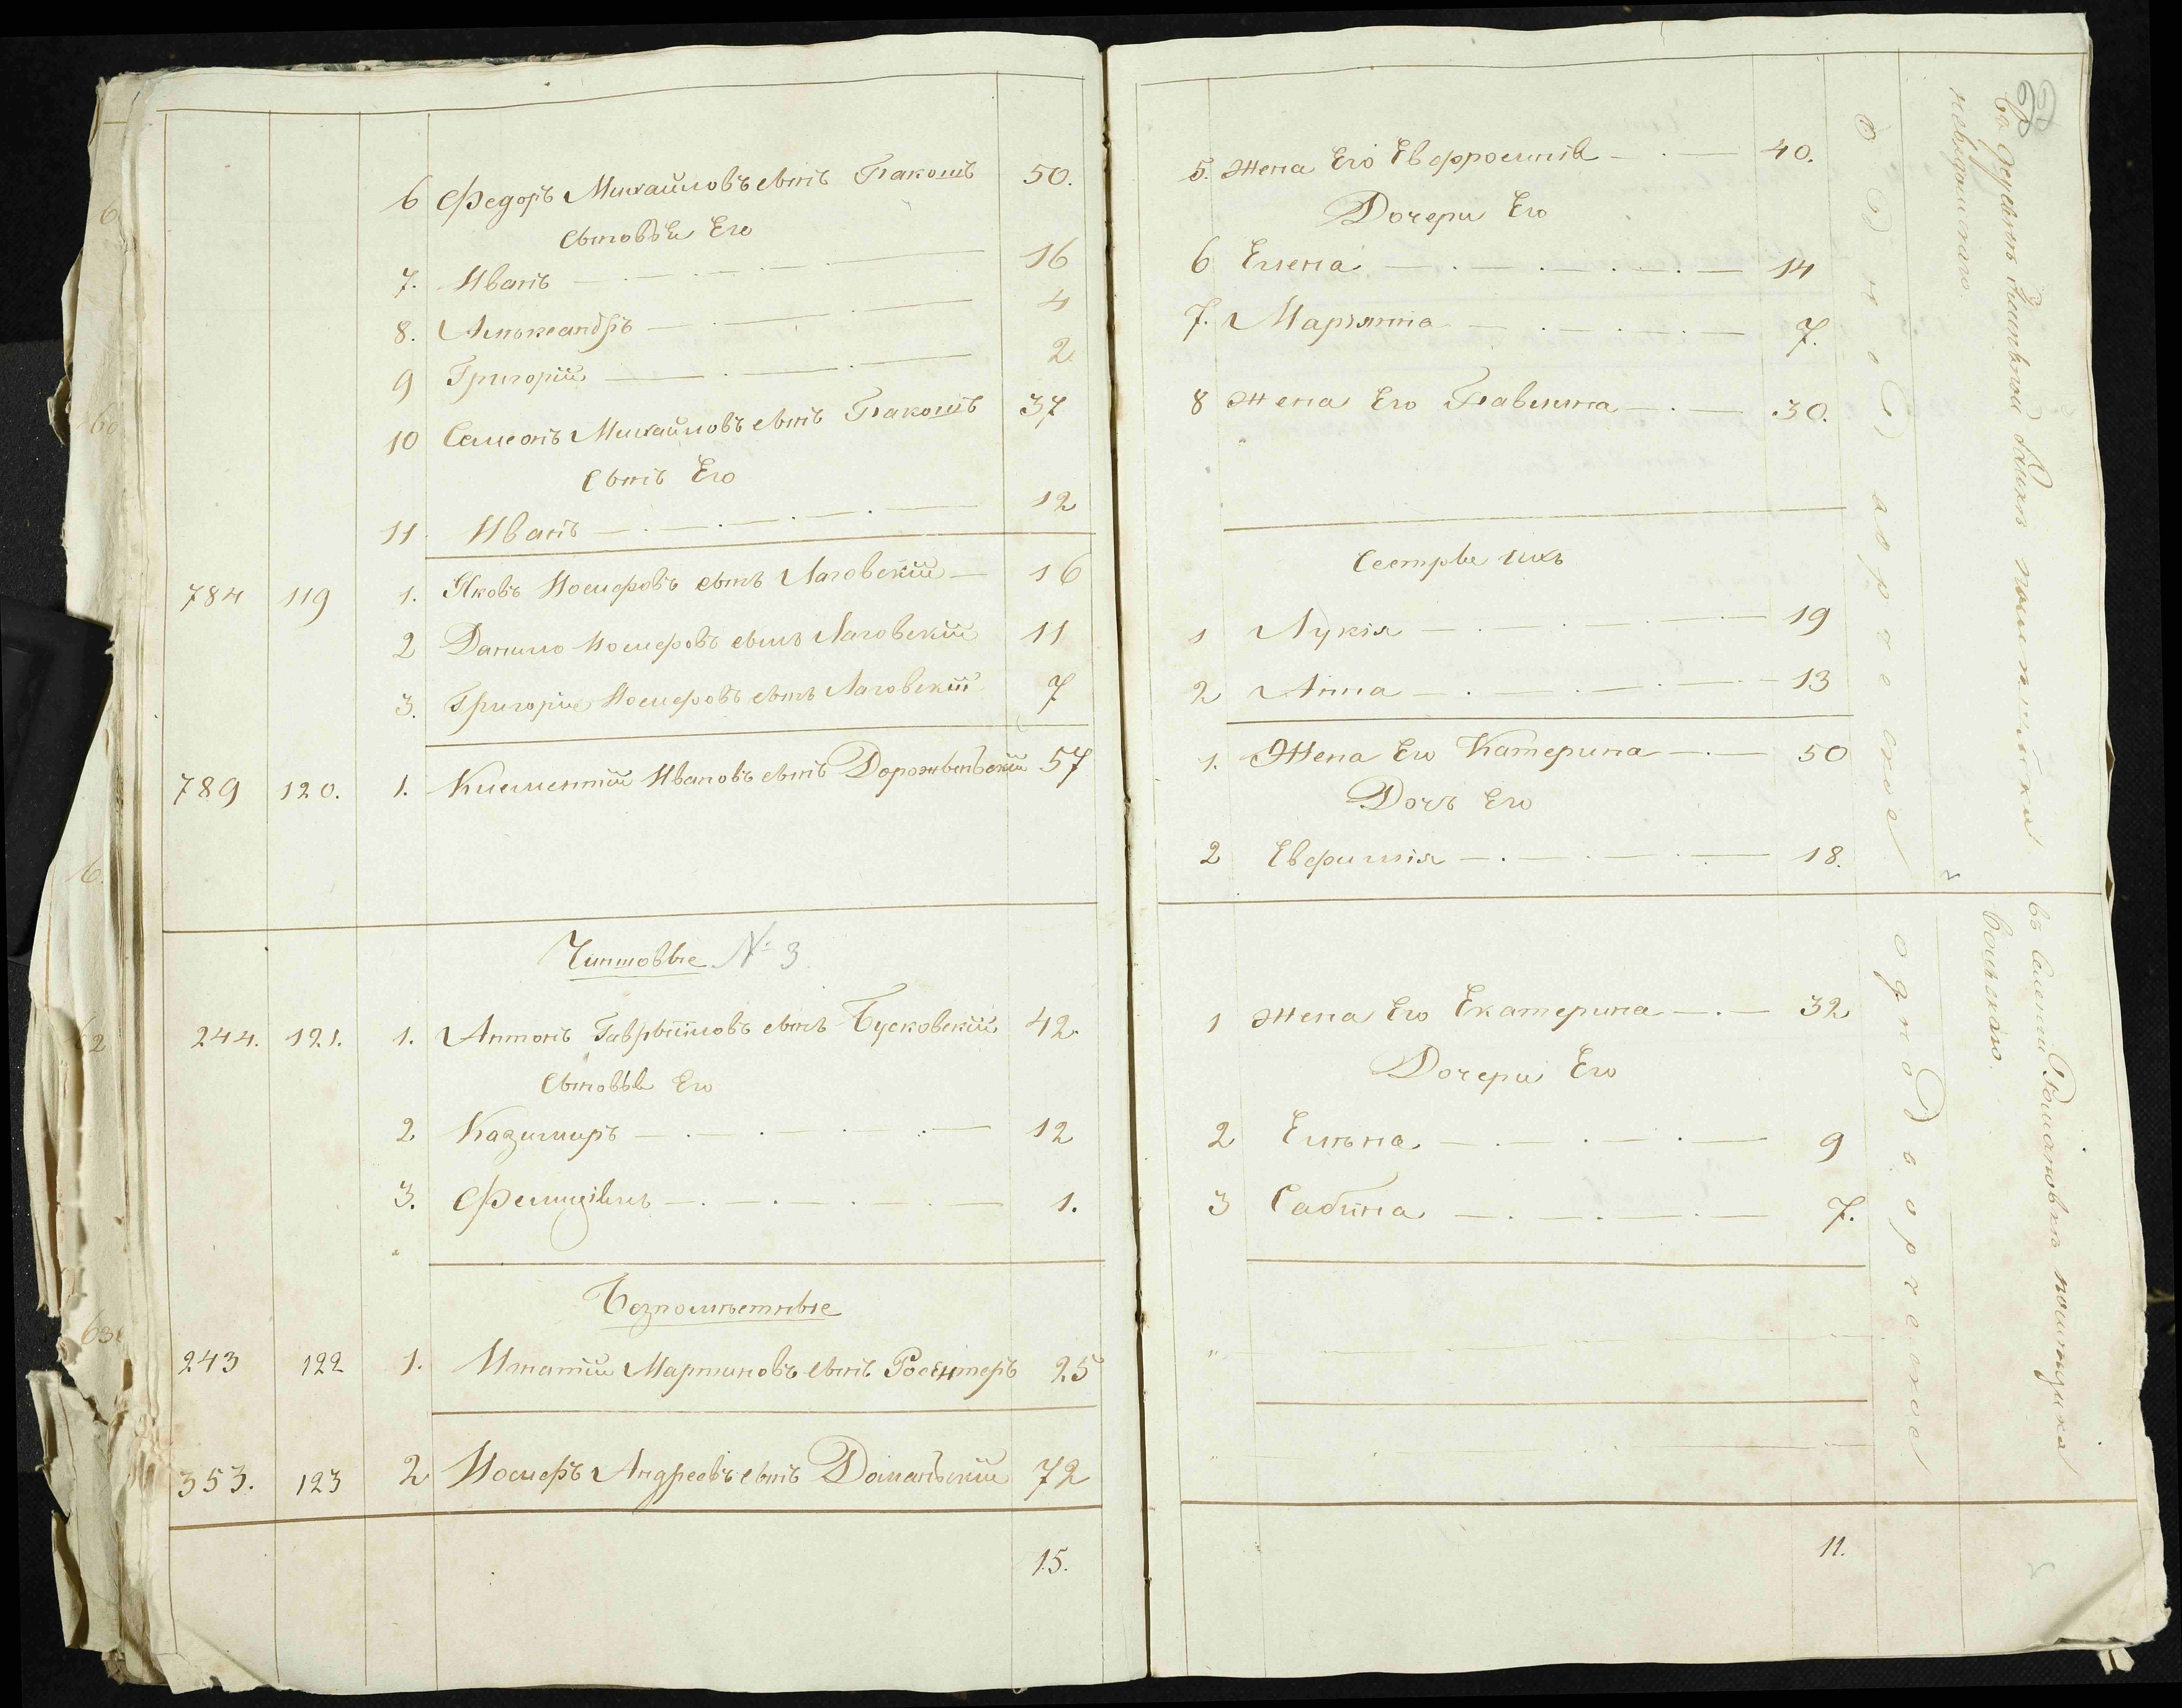 6 Федоръ Михайловъ сынъ Пакошъ 50.
Сыновья Его
7. Иванъ 16
8. Александръ 4
9 Григорій 2
10 Семеонъ Михайловъ сынъ Пакошъ 37
Сынъ Его
11 Иванъ 12
784 119 1. Яковъ Іосифовъ сынъ Лаговскій 16
2 Данило Іосифовъ сынъ Лаговскій 11
3. Григорій Іосифовъ сынъ Лаговскій 7
789 120. 1. Клементій Ивановъ сынъ 57
Чиншовые № 3
244. 121. 1. Антонъ сынъ Бусковскій 42.
Сыновья Его
2 Казимиръ 12
3. 1.
Безпомѣстные
243 122 1. Игнатій Мартиновъ сынъ 25
353. 123 2 Іосифъ Андреевъ сынъ Доманьскій 72
15.
5. Жена Его Евфросинія 40.
Дочери Его
6 Елена 14
7. Маріянна 7.
8 Жена Его Павлина 30.
Сестры ихъ
1 Лукія 19
2 Анна 13
1. Жена Его Катерина 50
Дочь Его
2 Евфимія 18.
1 Жена Его Екатерина 32
Дочери Его
2 Елѣна 9
3 Сабина 7.
11.
Однодворческое
въ деревнѣ помѣщика
однодворческое
въ селеніи Романовкѣ помѣщика